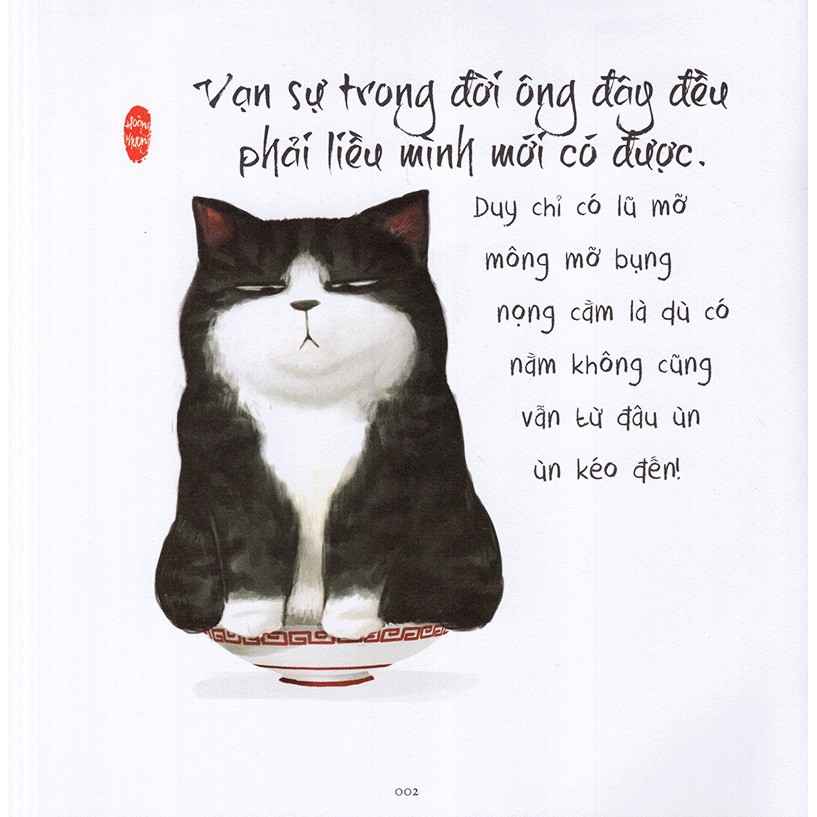 Vạn sự trong đời ông đây đều
phải liều mình mới có được.
Hoàng
Thượng
Duy chỉ có lũ mỡ
mông mỡ bụng
nọng cằm là dù có
nằm không cũng
vẫn từ đâu ùn
ùn kéo đến!
002